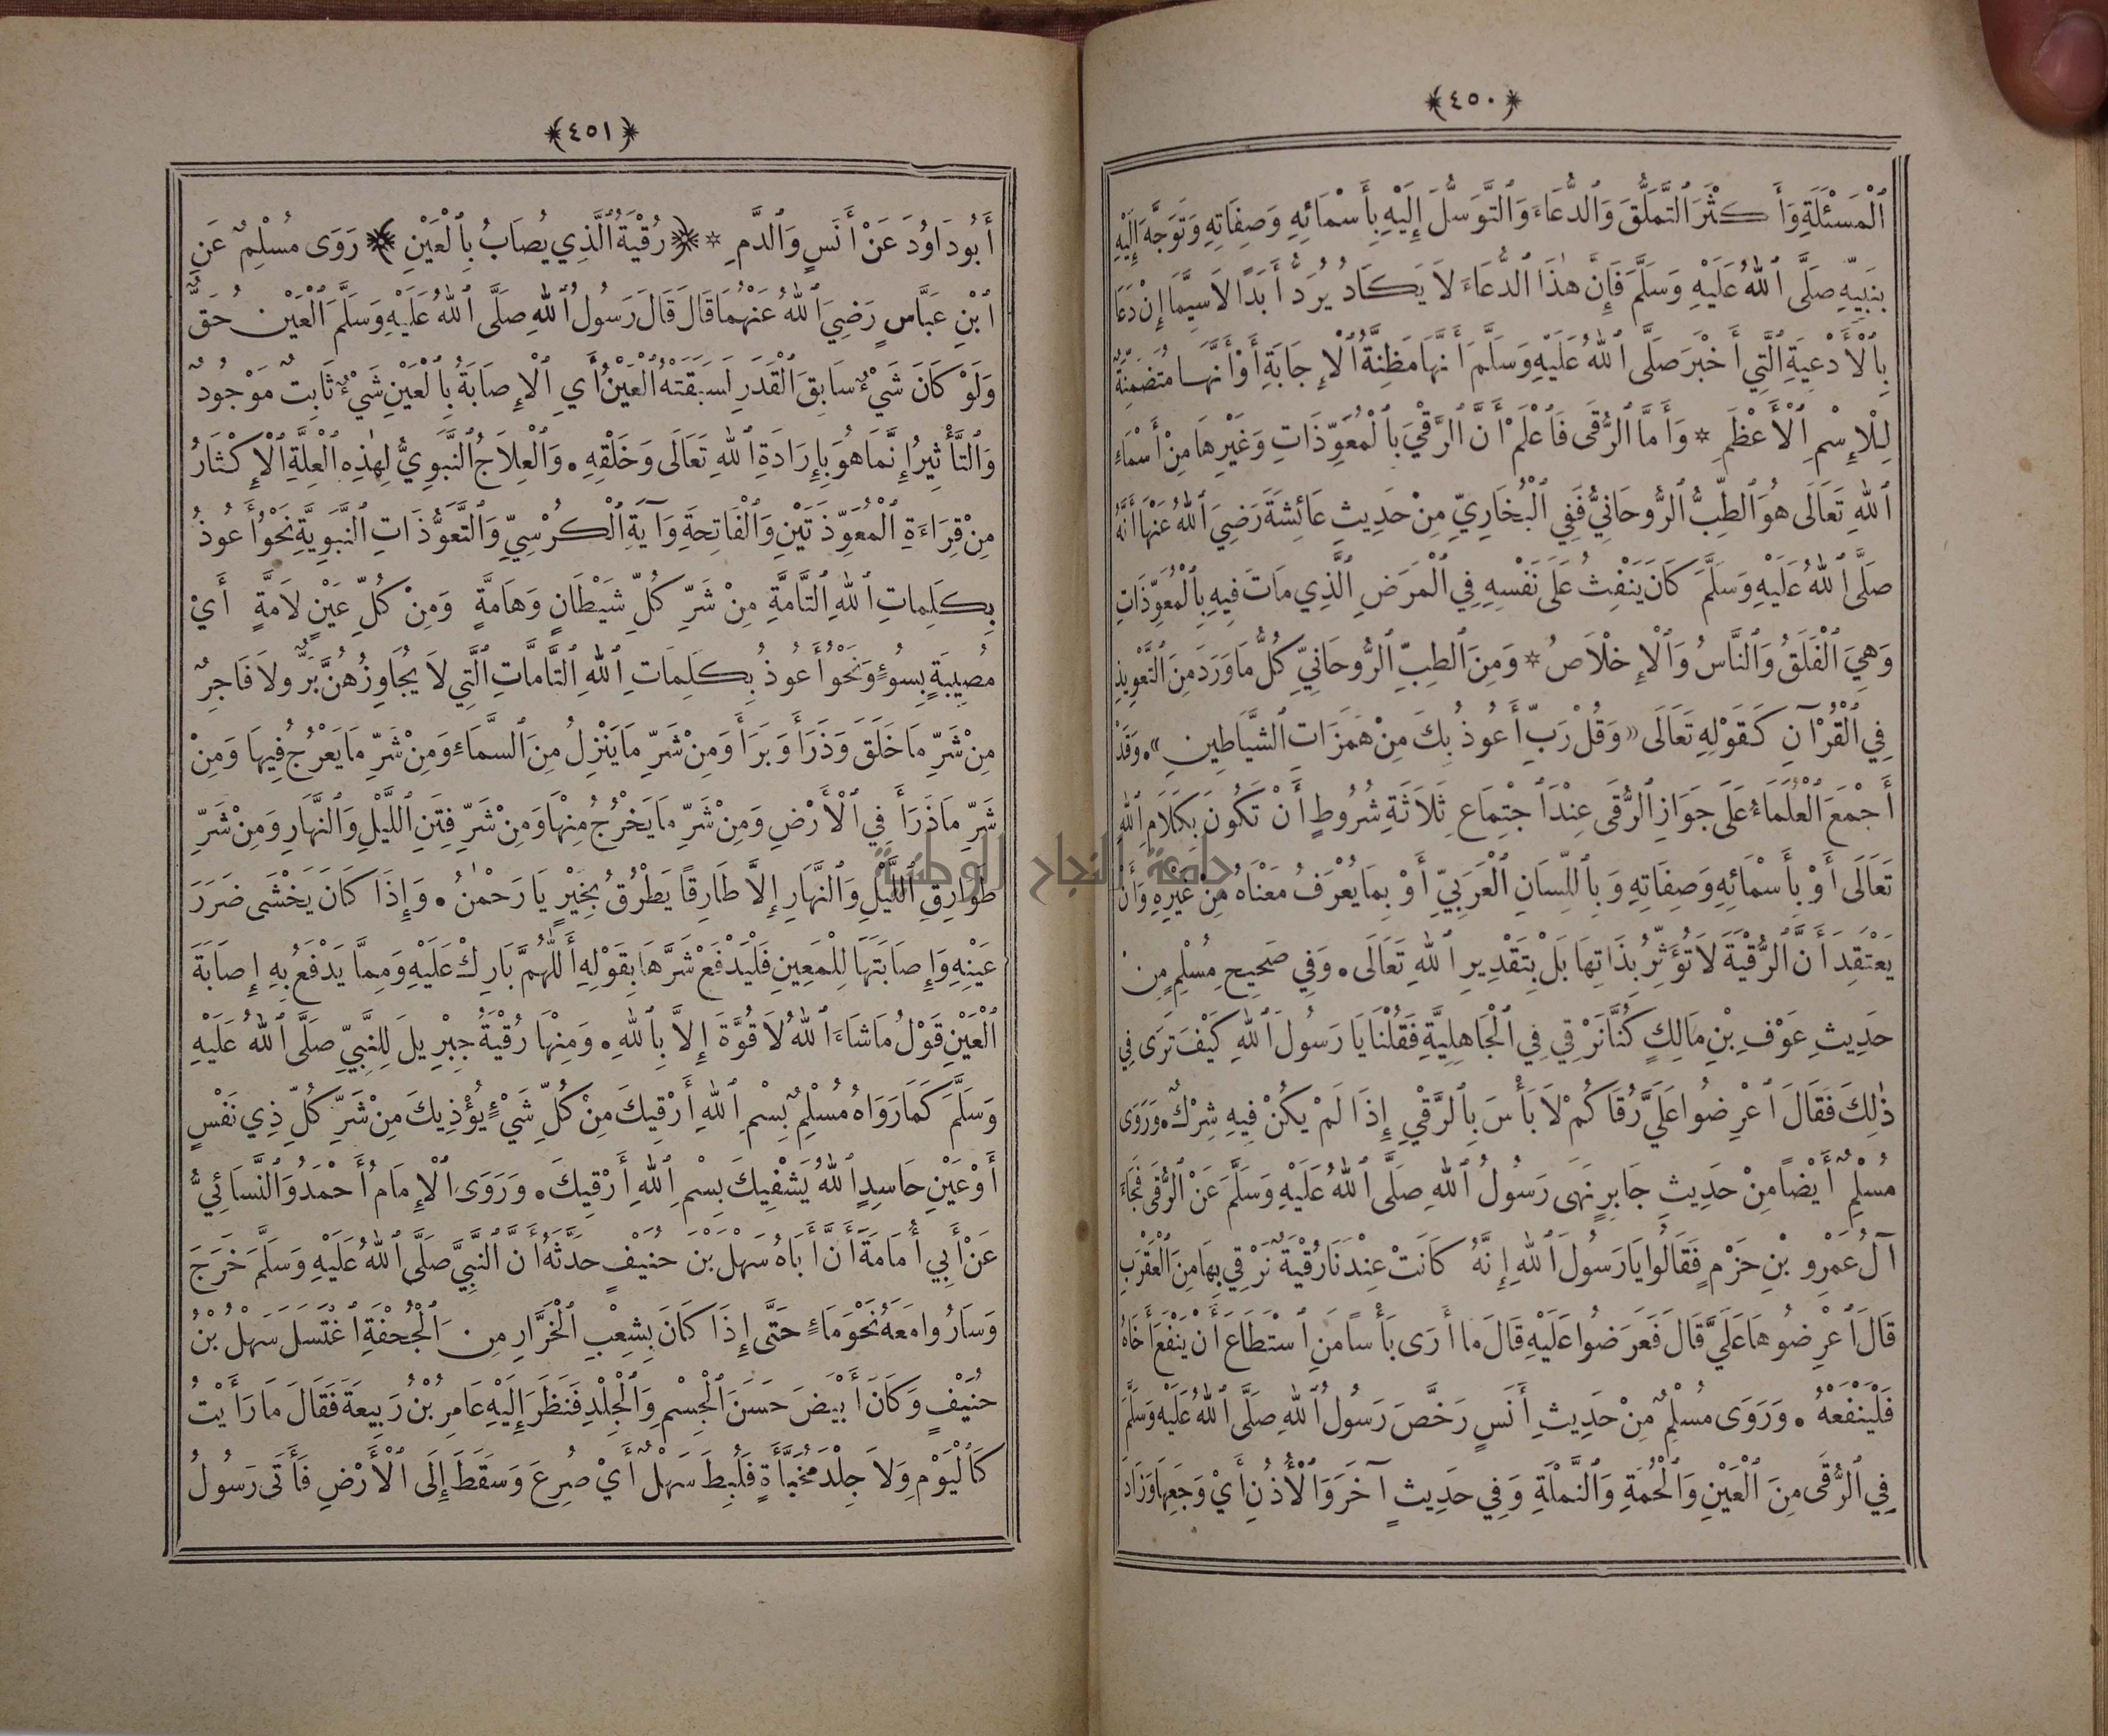 ﴿٤٥٠﴾
ٱلْمَسْئَلَةِ وَأَكْثَرَ ٱلتَّمَلُّقَ وَٱلدُّعَاءَ وَٱلتَّوَسُّلَ إِلَيْهِ بِأَسْمَائِهِ وَصِفَاتِهِ وَتَوَجَّهَ إِلَيْهِ
بِنَبِيِّهِ صَلَّى ٱللهُ عَلَيْهِ وَسَلَّمَ فَإِنَّ هٰذَا ٱلدُّعَاءَ لَا يَكَادُ يُرَدُّ أَبَدًا لَا سِيَّمَا إِنْ دَعَا
بِٱلْأَدْعِيَةِ ٱلَّتِي أَخْبَرَ صَلَّى ٱللهُ عَلَيْهِ وَسَلَّمَ أَنَّهَا مَظِنَّةُ ٱلْإِجَابَةِ أَوْ أَنَّهَا مُتَضَمِّنَةٌ
لِلْإِسْمِ ٱلْأَعْظَمِ * وَأَمَّا ٱلرُّقَى فَٱعْلَمْ أَنَّ ٱلرَّقْيَ بِٱلْمُعَوِّذَاتِ وَغَيْرِهَا مِنْ أَسْمَاءِ
ٱللهِ تَعَالَى هُوَ ٱلطِّبُّ ٱلرُّوحَانِيُّ فَفِي ٱلْبُخَارِيِّ مِنْ حَدِيثِ عَائِشَةَ رَضِيَ ٱللهُ عَنْهَا أَنَّهُ
صَلَّى ٱللهُ عَلَيْهِ وَسَلَّمَ كَانَ يَنْفِثُ عَلَى نَفْسِهِ فِي ٱلْمَرَضِ ٱلَّذِي مَاتَ فِيهِ بِٱلْمُعَوِّذَاتِ
وَهِيَ ٱلْفَلَقُ وَٱلنَّاسُ وَٱلْإِخْلَاصُ * وَمِنَ ٱلطِّبِّ ٱلرُّوحَانِيِّ كُلُّ مَا وَرَدَ مِنَ ٱلتَّعْوِيذِ
فِي ٱلْقُرْآنِ كَقَوْلِهِ تَعَالَى «وَقُلْ رَبِّ أَعُوذُ بِكَ مِنْ هَمَزَاتِ ٱلشَّيَاطِينِ». وَقَدْ
أَجْمَعَ ٱلْعُلَمَاءُ عَلَى جَوَازِ ٱلرُّقَى عِنْدَ ٱجْتِمَاعِ ثَلَاثَةِ شُرُوطٍ أَنْ تَكُونَ بِكَلَامِ ٱللهِ
تَعَالَى أَوْ بِأَسْمَائِهِ وَصِفَاتِهِ وَبِٱللِّسَانِ ٱلْعَرَبِيِّ أَوْ بِمَا يُعْرَفُ مَعْنَاهُ مِنْ غَيْرِهِ وَأَنْ
يَعْتَقِدَ أَنَّ ٱلرُّقْيَةَ لَا تُؤَثِّرُ بِذَاتِهَا بَلْ بِتَقْدِيرِ ٱللهِ تَعَالَى. وَفِي صَحِيحِ مُسْلِمٍ مِنْ
حَدِيثِ عَوْفِ بْنِ مَالِكٍ كُنَّا نَرْقِي فِي ٱلْجَاهِلِيَّةِ فَقُلْنَا يَا رَسُولَ ٱللهِ كَيْفَ تَرَى فِي
ذٰلِكَ فَقَالَ ٱعْرِضُوا عَلَيَّ رُقَاكُمْ لَا بَأْسَ بِٱلرَّقْيِ إِذَا لَمْ يَكُنْ فِيهِ شِرْكٌ. وَرَوَى
مُسْلِمٌ أَيْضًا مِنْ حَدِيثِ جَابِرٍ نَهَى رَسُولُ ٱللهِ صَلَّى ٱللهُ عَلَيْهِ وَسَلَّمَ عَنْ ٱلرُّقَى فَجَاءَ
آلُ عَمْرِو بْنِ حَزْمٍ فَقَالُوا يَا رَسُولَ ٱللهِ إِنَّهُ كَانَتْ عِنْدَنَا رُقْيَةٌ نَرْقِي بِهَا مِنَ ٱلْعَقْرَبِ
قَالَ ٱعْرِضُوهَا عَلَيَّ قَالَ فَعَرَضُوا عَلَيْهِ قَالَ مَا أَرَى بَأْسًا مَنِ ٱسْتَطَاعَ أَنْ يَنْفَعَ أَخَاهُ
فَلْيَنْفَعْهُ. وَرَوَى مُسْلِمٌ مِنْ حَدِيثِ أَنَسٍ رَخَّصَ رَسُولُ ٱللهِ صَلَّى ٱللهُ عَلَيْهِ وَسَلَّمَ
فِي ٱلرُّقَى مِنَ ٱلْعَيْنِ وَٱلْحُمَةِ وَٱلنَّمْلَةِ وَفِي حَدِيثٍ آخَرَ وَٱلْأُذُنِ أَيْ وَجَعِهَا وَزَادَ
﴿٤٥١﴾
أَبُو دَاوُدَ عَنْ أَنَسٍ وَٱلدَّمِ * ﴿رُقْيَةُ ٱلَّذِي يُصَابُ بِٱلْعَيْنِ﴾ رَوَى مُسْلِمٌ عَنِ
ٱبْنِ عَبَّاسٍ رَضِيَ ٱللهُ عَنْهُمَا قَالَ قَالَ رَسُولُ ٱللهِ صَلَّى ٱللهُ عَلَيْهِ وَسَلَّمَ ٱلْعَيْنُ حَقٌّ
وَلَوْ كَانَ شَيْءٌ سَابِقَ ٱلْقَدَرِ لَسَبَقَتْهُ ٱلْعَيْنُ أَيِ ٱلْإِصَابَةُ بِٱلْعَيْنِ شَيْءٌ ثَابِتٌ مَوْجُودٌ
وَٱلتَّأْثِيرُ إِنَّمَا هُوَ بِإِرَادَةِ ٱللهِ تَعَالَى وَخَلْقِهِ. وَٱلْعِلَاجُ ٱلنَّبَوِيُّ لِهٰذِهِ ٱلْعِلَّةِ ٱلْإِكْثَارُ
مِنْ قِرَاءَةِ ٱلْمُعَوِّذَتَيْنِ وَٱلْفَاتِحَةِ وَآيَةِ ٱلْكُرْسِيِّ وَٱلتَّعَوُّذَاتِ ٱلنَّبَوِيَّةِ نَحْوُ أَعُوذُ
بِكَلِمَاتِ ٱللهِ ٱلتَّامَّةِ مِنْ شَرِّ كُلِّ شَيْطَانٍ وَهَامَّةٍ وَمِنْ كُلِّ عَيْنٍ لَامَّةٍ أَيْ
مُصِيبَةٍ بِسُوءٍ وَنَحْوُ أَعُوذُ بِكَلِمَاتِ ٱللهِ ٱلتَّامَّاتِ ٱلَّتِي لَا يُجَاوِزُهُنَّ بَرٌّ وَلَا فَاجِرٌ
مِنْ شَرِّ مَا خَلَقَ وَذَرَأَ وَبَرَأَ وَمِنْ شَرِّ مَا يَنْزِلُ مِنَ ٱلسَّمَاءِ وَمِنْ شَرِّ مَا يَعْرُجُ فِيهَا وَمِنْ
شَرِّ مَا ذَرَأَ فِي ٱلْأَرْضِ وَمِنْ شَرِّ مَا يَخْرُجُ مِنْهَا وَمِنْ شَرِّ فِتَنِ ٱللَّيْلِ وَٱلنَّهَارِ وَمِنْ شَرِّ
طَوَارِقِ ٱللَّيْلِ وَٱلنَّهَارِ إِلَّا طَارِقًا يَطْرُقُ بِخَيْرٍ يَا رَحْمٰنُ. وَإِذَا كَانَ يَخْشَى ضَرَرَ
عَيْنِهِ وَإِصَابَتَهَا لِلْمَعِينِ فَلْيَدْفَعْ شَرَّهَا بِقَوْلِهِ أَللّٰهُمَّ بَارِكْ عَلَيْهِ وَمِمَّا يَدْفَعُ بِهِ إِصَابَةَ
ٱلْعَيْنِ قَوْلُ مَا شَاءَ ٱللهُ لَا قُوَّةَ إِلَّا بِٱللهِ. وَمِنْهَا رُقْيَةُ جِبْرِيلَ لِلنَّبِيِّ صَلَّى ٱللهُ عَلَيْهِ
وَسَلَّمَ كَمَا رَوَاهُ مُسْلِمٌ بِسْمِ ٱللهِ أَرْقِيكَ مِنْ كُلِّ شَيْءٍ يُؤْذِيكَ مِنْ شَرِّ كُلِّ ذِي نَفْسٍ
أَوْ عَيْنِ حَاسِدٍ ٱللهُ يَشْفِيكَ بِسْمِ ٱللهِ أَرْقِيكَ. وَرَوَى ٱلْإِمَامُ أَحْمَدُ وَٱلنَّسَائِيُّ
عَنْ أَبِي أُمَامَةَ أَنَّ أَبَاهُ سَهْلَ بْنَ حُنَيْفٍ حَدَّثَهُ أَنَّ ٱلنَّبِيَّ صَلَّى ٱللهُ عَلَيْهِ وَسَلَّمَ خَرَجَ
وَسَارُوا مَعَهُ نَحْوَ مَاءٍ حَتَّى إِذَا كَانَ بِشِعْبِ ٱلْخَرَّارِ مِنَ ٱلْجُحْفَةِ ٱغْتَسَلَ سَهْلُ بْنُ
حُنَيْفٍ وَكَانَ أَبْيَضَ حَسَنَ ٱلْجِسْمِ وَٱلْجِلْدِ فَنَظَرَ إِلَيْهِ عَامِرُ بْنُ رَبِيعَةَ فَقَالَ مَا رَأَيْتُ
كَٱلْيَوْمِ وَلَا جِلْدَ مُخَبَّأَةٍ فَلُبِطَ سَهْلٌ أَيْ صُرِعَ وَسَقَطَ إِلَى ٱلْأَرْضِ فَأَتَى رَسُولُ
جامعة النجاح الوطنية